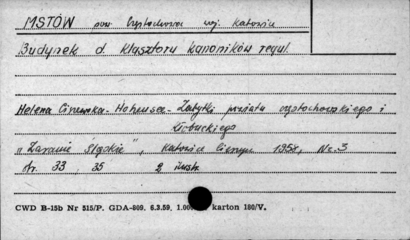 MSTÓW pow. Częstochowa woj. Katowice
Budynek d. klasztoru kanoników regul.
Helena Cinewska-Hohensee - Zabytki powiatu częstochowskiego i
kłobuckiego
"Zaranie Śląskie", Katowice Cieszyn 1958, Nr. 3
str. 33, 35 2 ilustr.
CWD B-15b Nr 515/P. GDA-809. 6.3.59. 1.00 karton 180/V.